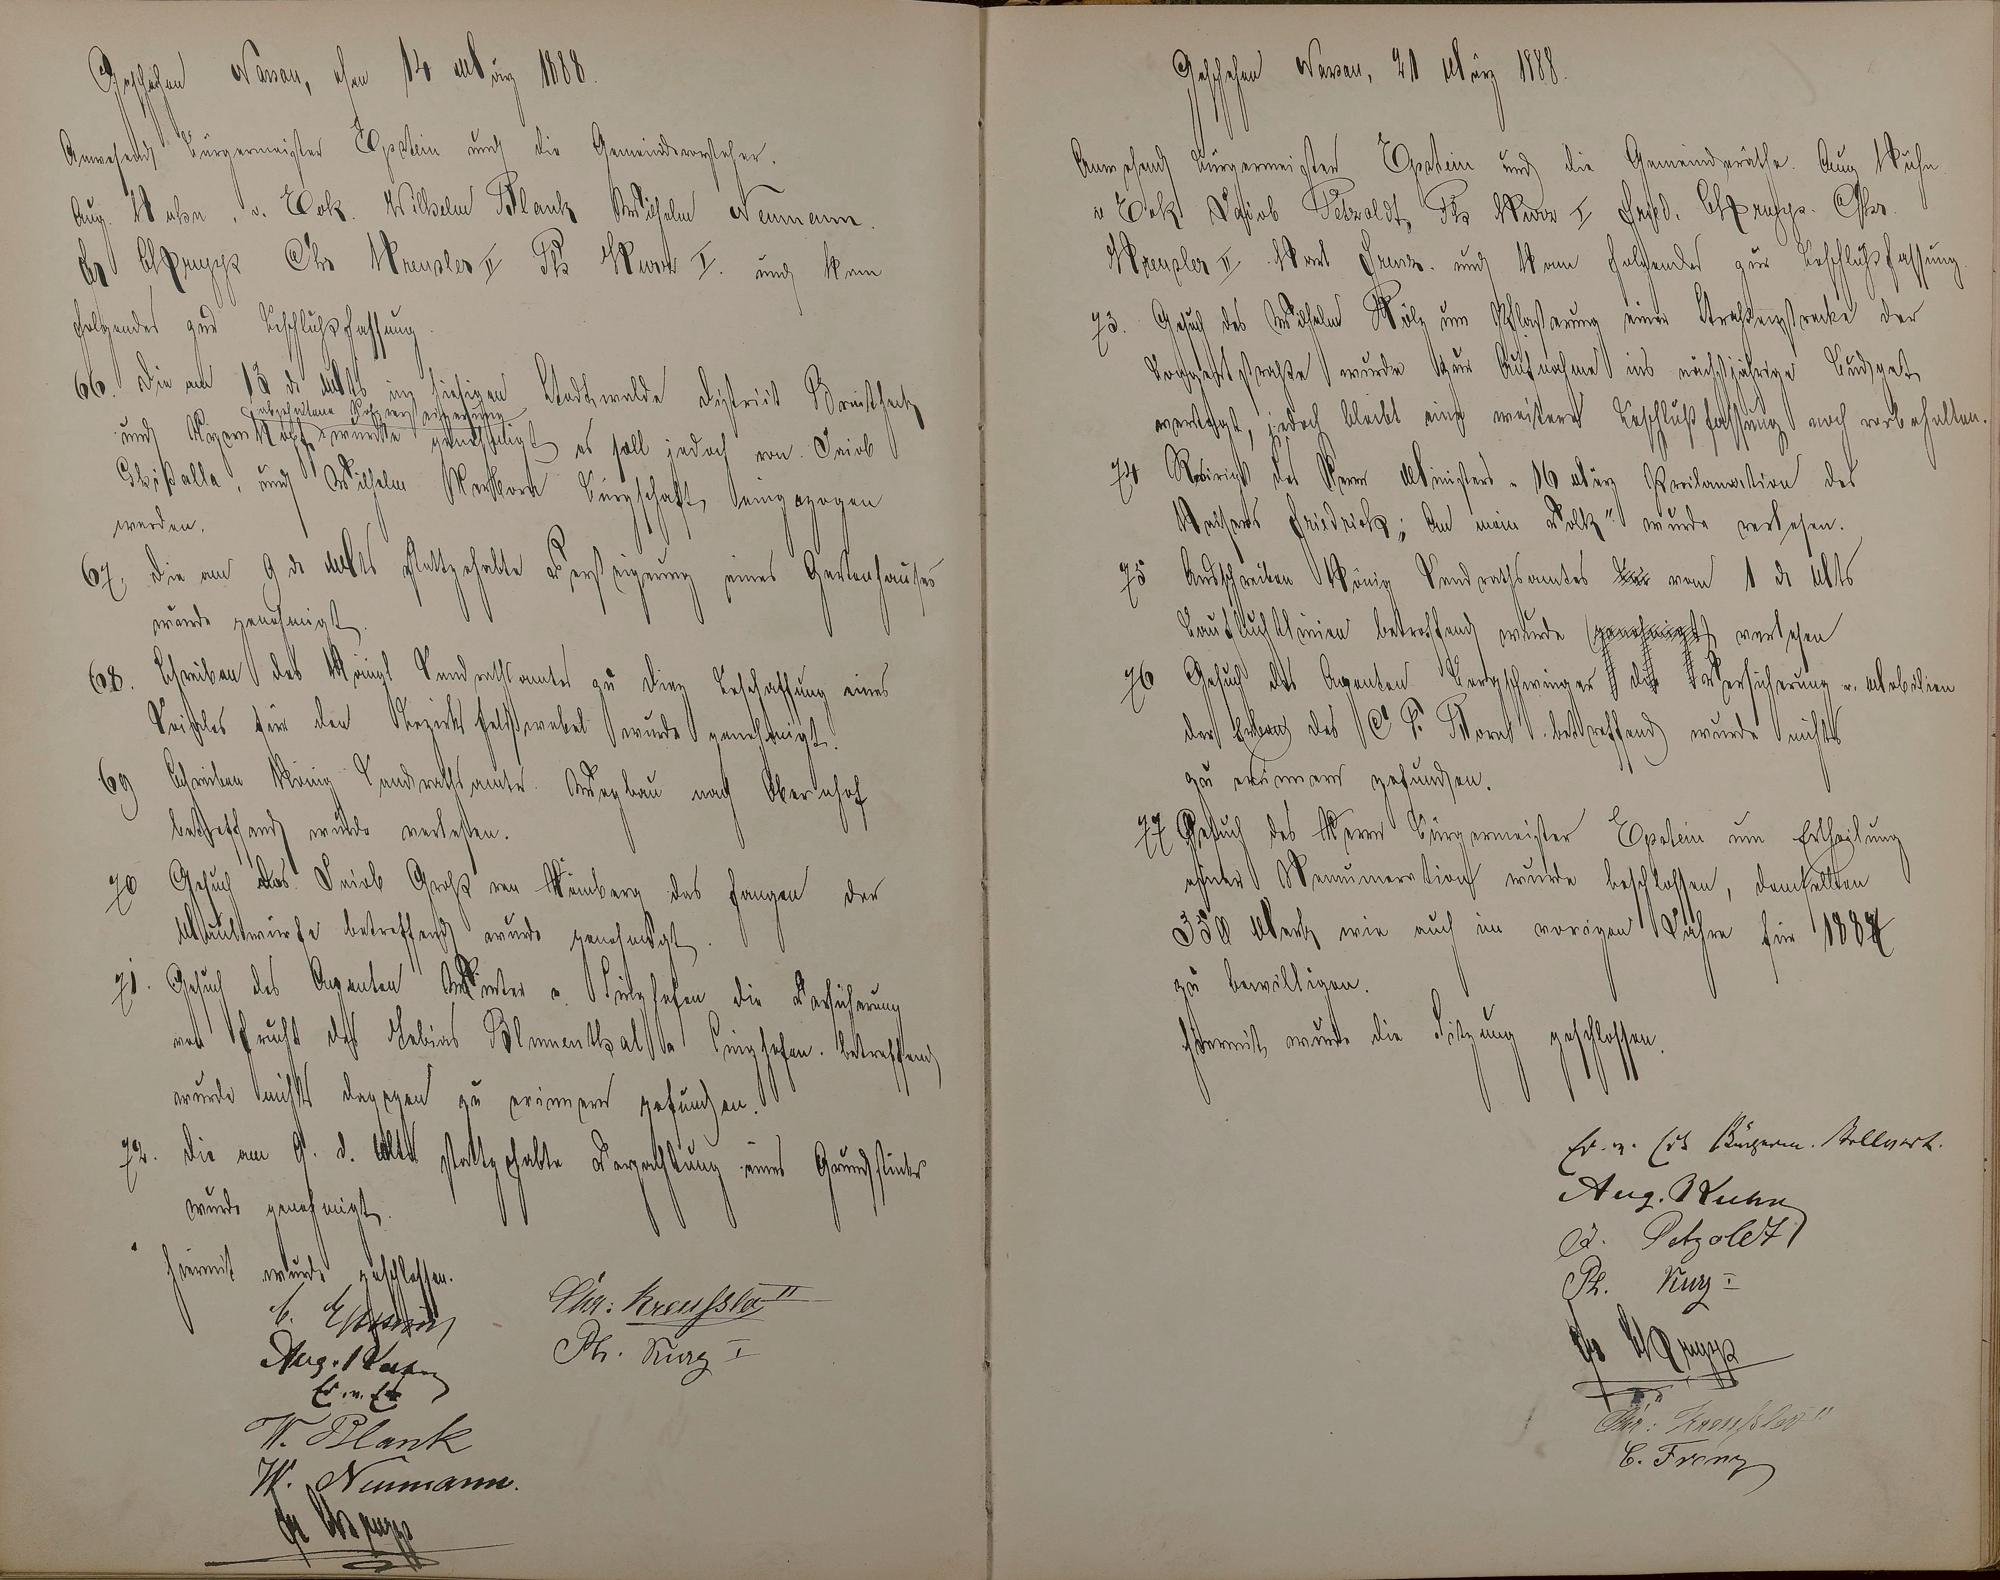 Geschehen Nassau, den 14 März 1888.
Anwesend Bürgermeister Epstein und die Gemeindevorsteher.
Aug. Kuhn, v. Eck. Wilhelm Blank Wilhelm Neumann.
Chr Kreusler II Ph Kurz I. und kam
folgendes zur Beschlußfassung
66. Die am 13 ds Mts im hiesigen Stadtwalde District
abgehaltene Holzversteigerung
und wurde genehmigt es soll jedoch von Jacob
und Wilhelm Bürgschaft eingezogen
werden.
67. Die am 9 ds Mts stattgehabte Versteigerung eines Gartenhauses
wurde genehmigt.
68. Schreiben des Königl Landrathsamtes zu Diez Beschaffung eines
für den Bezirksfeldwebel wurde genehmigt.
69 Schreiben König Landrathsamts. Wegbau nach Obernhof
betreffend wurde verlesen.
70 Gesuch des Jacob Groß von das Fangen der
Maulwürfe betreffend wurde genehmigt.
71. Gesuch des Agenten Winter v. Singhofen die Versicherung
von Frucht des Tobias Blumenthal v Singhofen. betreffend
wurde nichts dagegen zu erinnern gefunden.
72. Die am 9. d. Mts stattgehabte Verpachtung eines Grundstückes
wurde genehmigt.
Hiermit wurde geschlossen.
C. Epstein
Aug. Kuhn
W. Blank
W. Neumann.
Chr: Kreußler II
Ph. Kurz I
Geschehen Nassau, 21 März 1888.
Anwesend Bürgermeister Epstein und die Gemeinderäthe. Aug Kuhn
v Eck Jacob Petzoldt, Ph Kurz I Fried. Chr.
Kreusler II Karl Frenz. und kam folgendes zur Beschlußfassung.
73. Gesuch des Wilhelm um Pflasterung einer Straßenstrecke der
wurde zur Aufnahme ins nächstjährige Budget
verlegt, jedoch bleibt eine weitere Beschlußfassung noch vorbehalten.
74 des Herrn Ministers v 16 März Proclamation des
Kaisers Friedrich; "An mein Volk" wurde verlesen.
75 Ausschreiben König Landrathsamtes vom 1 ds Mts
Baufluchtlinien betreffend wurde genehmigt verlesen
76 Gesuch des Agenten Bergschwinger die Versicherung v. Mobilien
der des C P. betreffend wurde nichts
zu erinnern gefunden.
77 Gesuch des Herrn Bürgermeister Epstein um Ertheilung
einer Renumeration wurde beschlossen, demselben
350 Mark wie auch im vorigen Jahre für 1887
zu bewilligen.
Hiermit wurde die Sitzung geschlossen.
Ed. v. Eck Bürgerm. Stellvert.
Aug. Kuhn
J. Petzoldt
Ph. Kurz I
Chr: Kreußler II
C. Frenz